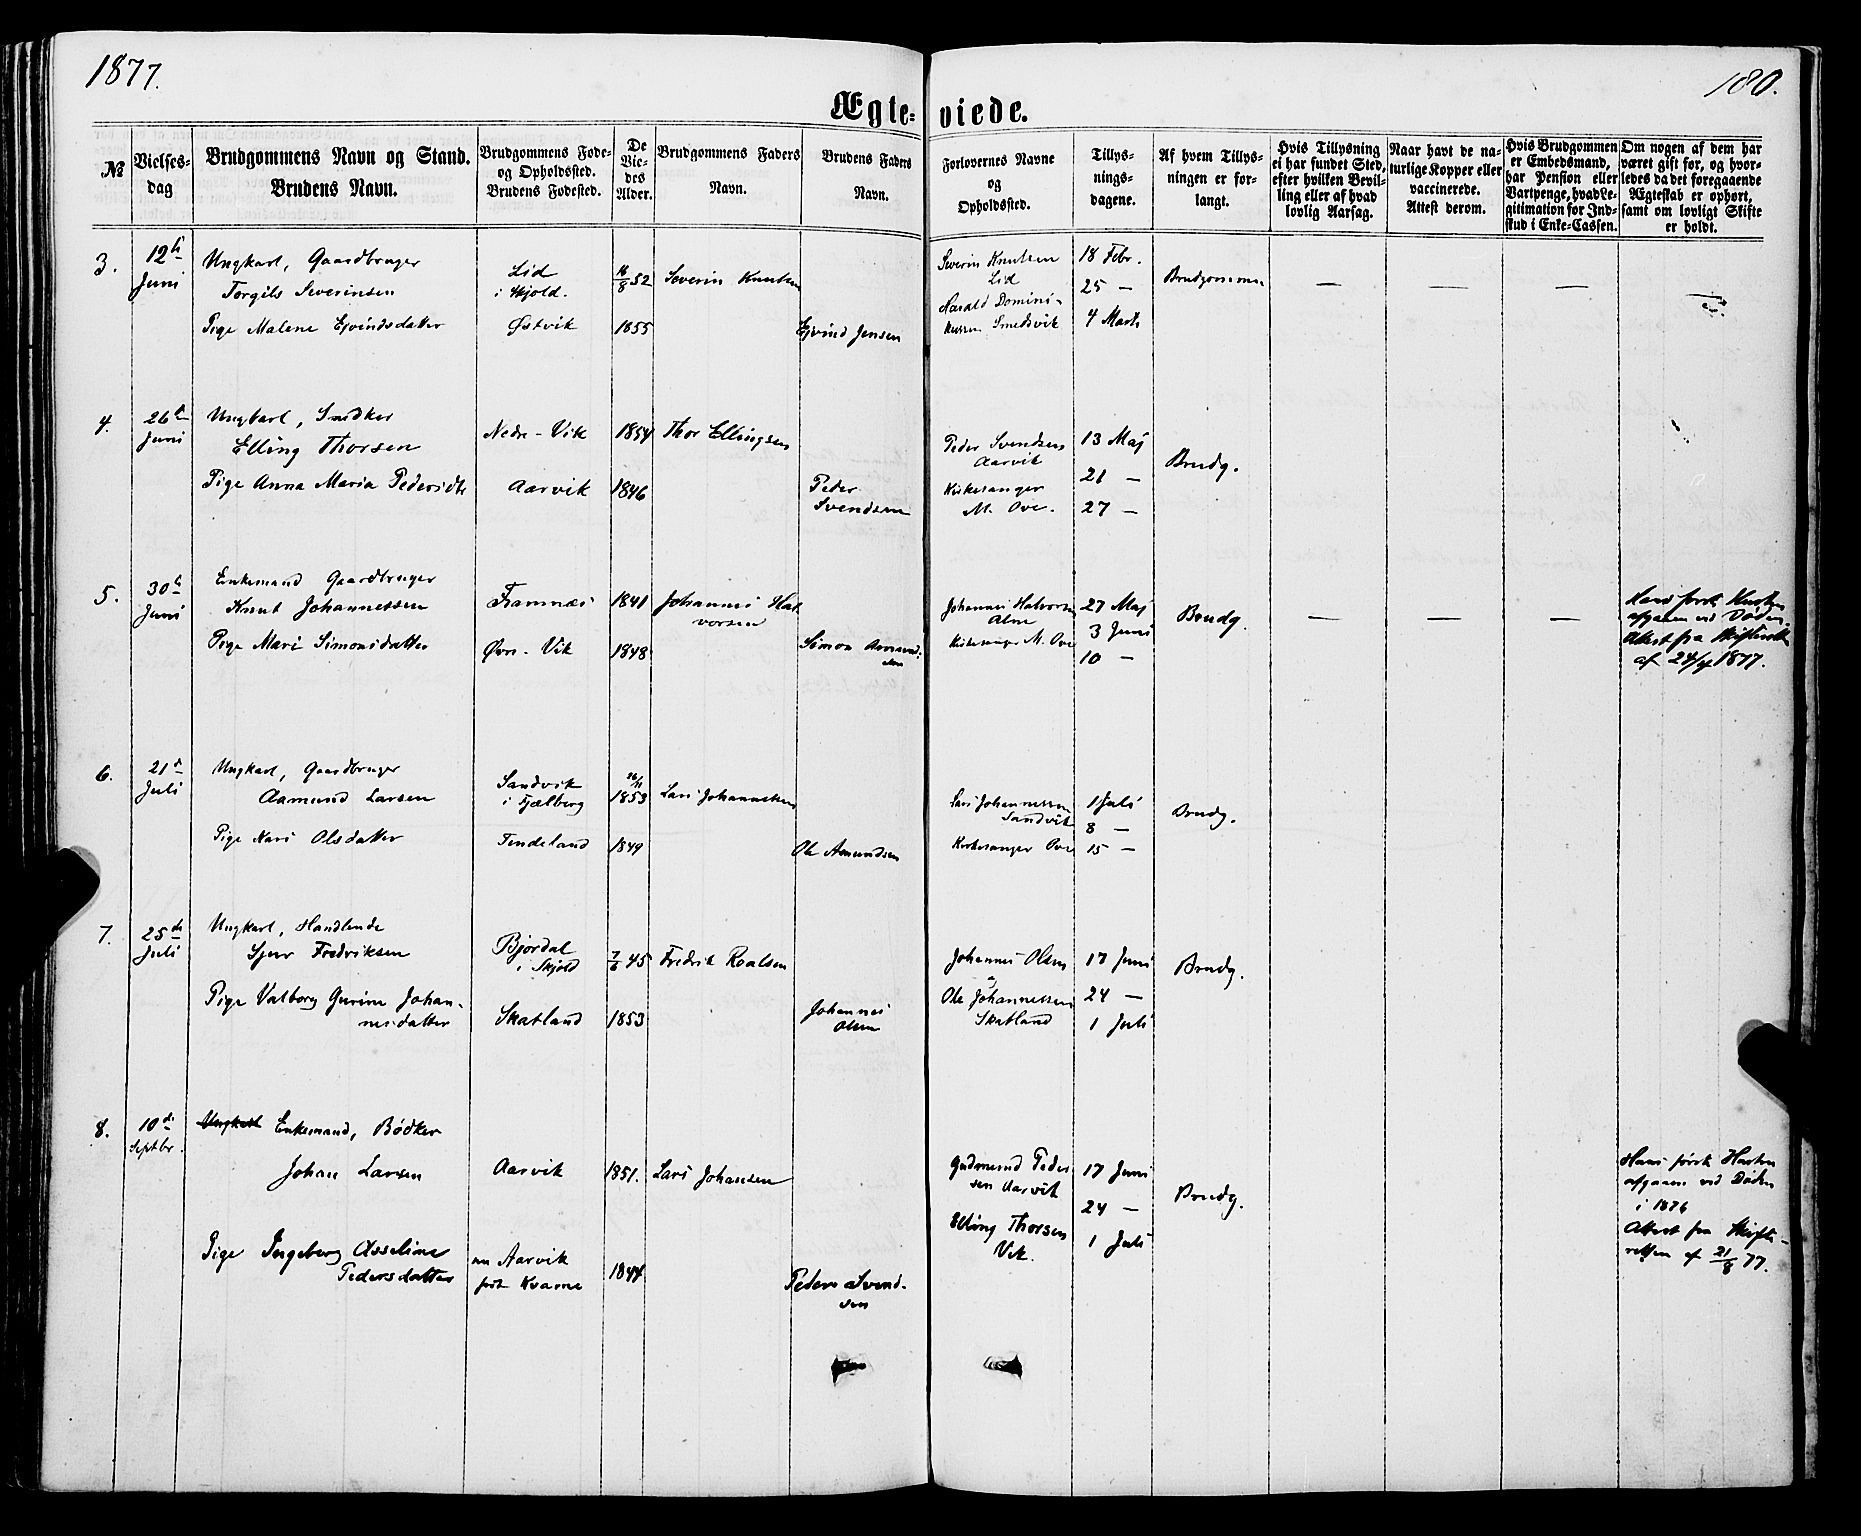 1877.
180.
Ægte- viede.
№
Vielses-
dag
Brudgommens Navn og Stand.
Brudens Navn.
Brudgommens Føde-
og Opholdssted.
Brudens Fødested.
De
Vie-
des
Alder.
Brudgommens Faders
Navn.
Brudens Faders
Navn.
Forlovernes Navne
og
Opholdssted.
Tillys-
nings-
dagene.
Af hvem Tillys-
ningen er for-
langt.
Hvis Tillysning
ei har fundet Sted,
efter hvilken Bevil-
ling eller af hvad
lovlig Aarsag.
Naar havt de na-
turlige Kopper eller
vaccinerede.
Attest derom.
Hvis Brudgommen
er Embedsmand,
har Pension eller
Vartpenge, hvad Le-
gitimation for Ind-
skud i Enke-Cassen.
Om nogen af dem har
været gift før, og hvor-
ledes da det foregaaende
Ægteskab er ophørt,
samt om lovligt Skifte
er holdt.
3.
12te
Juni
Ungkarl, Gaardbruger
Torgils Severinsen
Pige Malene Ejvindsdatter
Lid
i Skjold.
Østvik
16/8 52
1855
Severin Knutsen
Ejvind Jensen
Severin Knutsen
Lid
Harald Domini-
kussen Smedsvik
18 Febr.
25 —
4 Marts
Brudgommen
— — — —
4.
26de
Juni
Ungkarl, Snedker
Elling Thorsen
Pige Anna Maria Pedersdtr
Nedre-Vik
Aarvik
1854
1846
Thor Ellingsen
Peder
Svendsen
Peder Svendsen
Aarvik
Kirkesanger
M. Ove.
13 Maj
21 —
27 —
Brudg.
5.
30te
Juni
Enkemand Gaardbruger
Knut Johannessen
Pige Mari Simonsdatter
Framnæs
Øvre-Vik
1841
1848
Johannes Hal
vorsen
Simon Aamund-
sen
Johannes Halvorsen
Kirkesanger M. Ove
27 Maj
3 Juni
10 —
Brudg.
— — —
Hans første Hustru
afgaaen ved Døden.
Attest fra Skifteretten
af 24/4 1877.
6.
21de
Juli
Ungkarl, Gaardbruger
Aamund Larsen
Pige Mari Olsdatter
Sandvik
i Fjælberg
Tendeland
26/11
1853
1849
Lars Johannessen
Ole Amundsen
Lars Johannessen
Sandvik
Kirkesanger Ove
1 Juli
8 —
15 —
Brudg.
7.
25de
Juli
Ungkarl, Handlende
Sjur Fredriksen
Pige Valborg Gurine Johan-
nesdatter
Bjordal
i Skjold
Skatland
7/6 45
1853
Fredrik Roalsen
Johannes
Olsen
Johannes Olsen
Ole Johannessen
Skatland
17 Juni
24 —
1 Juli
Brudg.
8.
10de
Septbr.
Ungkarl Enkemand, Bødker
Johan Larsen
Pige Ingeborg Asseline
Pedersdatter
Aarvik
nu Aarvik
født Kvame
1851.
1844
Lars Johansen
Peder Svend-
sen
Gudmund Peder
sen Aarvik
Elling Thorsen
Vik.
17 Juni
24 —
1 Juli
Brudg.
Hans første Hustru
afgaaen ved Døden
i 1876
Attest fra Skifte-
retten af 21/8 77.